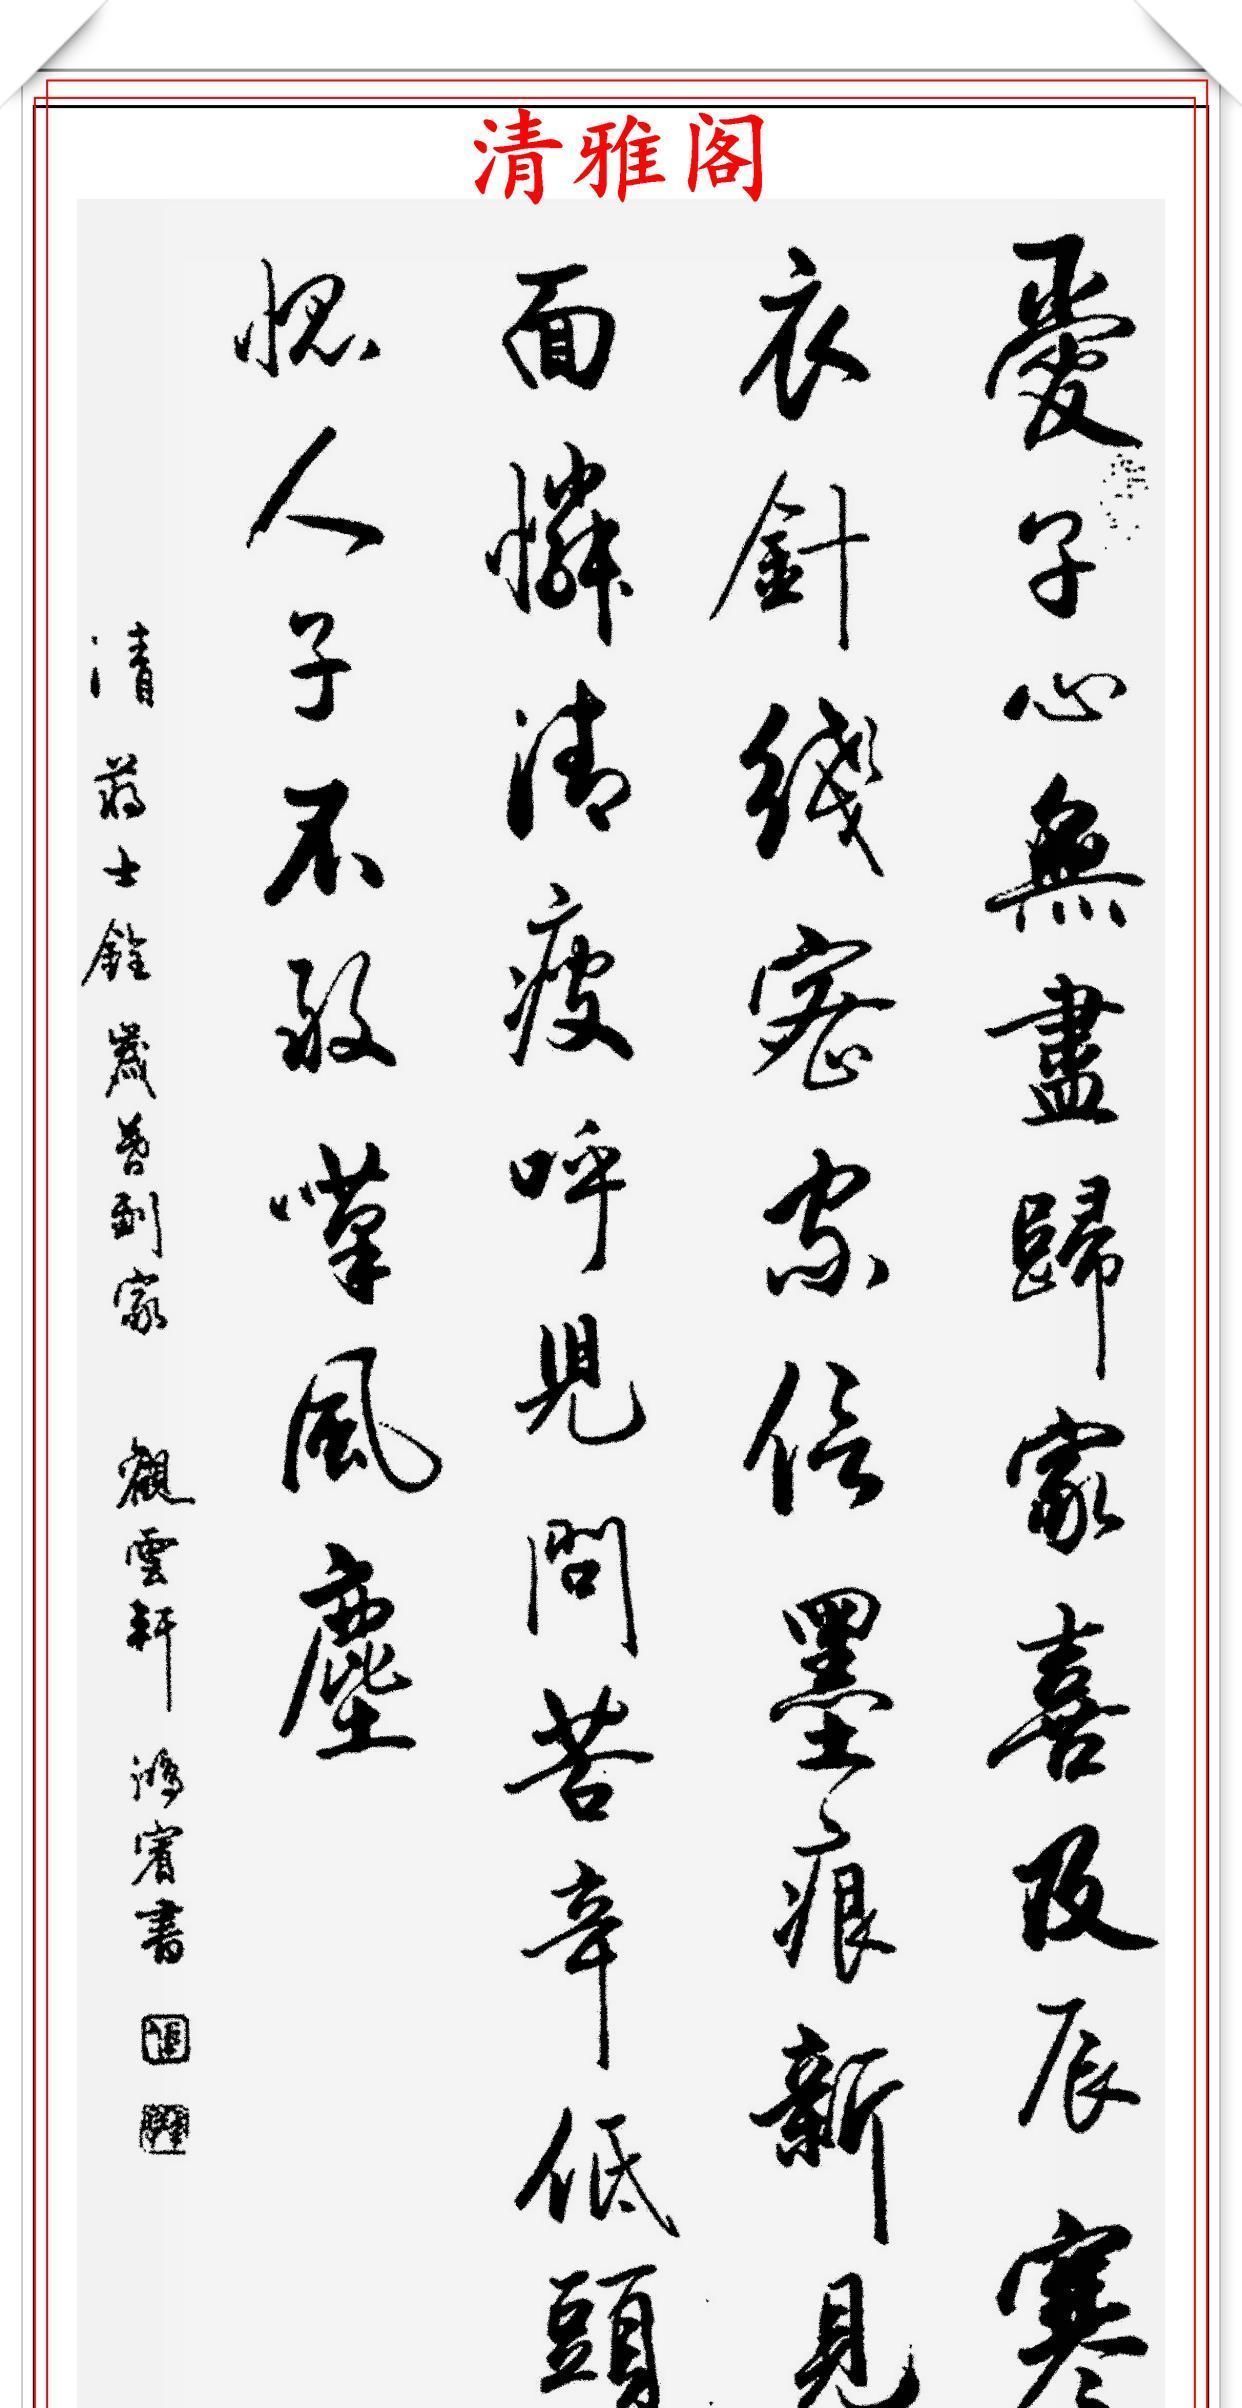 清雅阁
愛子心無盡歸家喜及辰寒
衣針綫密家信墨痕新見
面憐清瘦呼兒問苦辛低頭
愧人子不敢嘆風塵
清 蔣士銓 歲暮到家 觀雲軒 鴻賓書